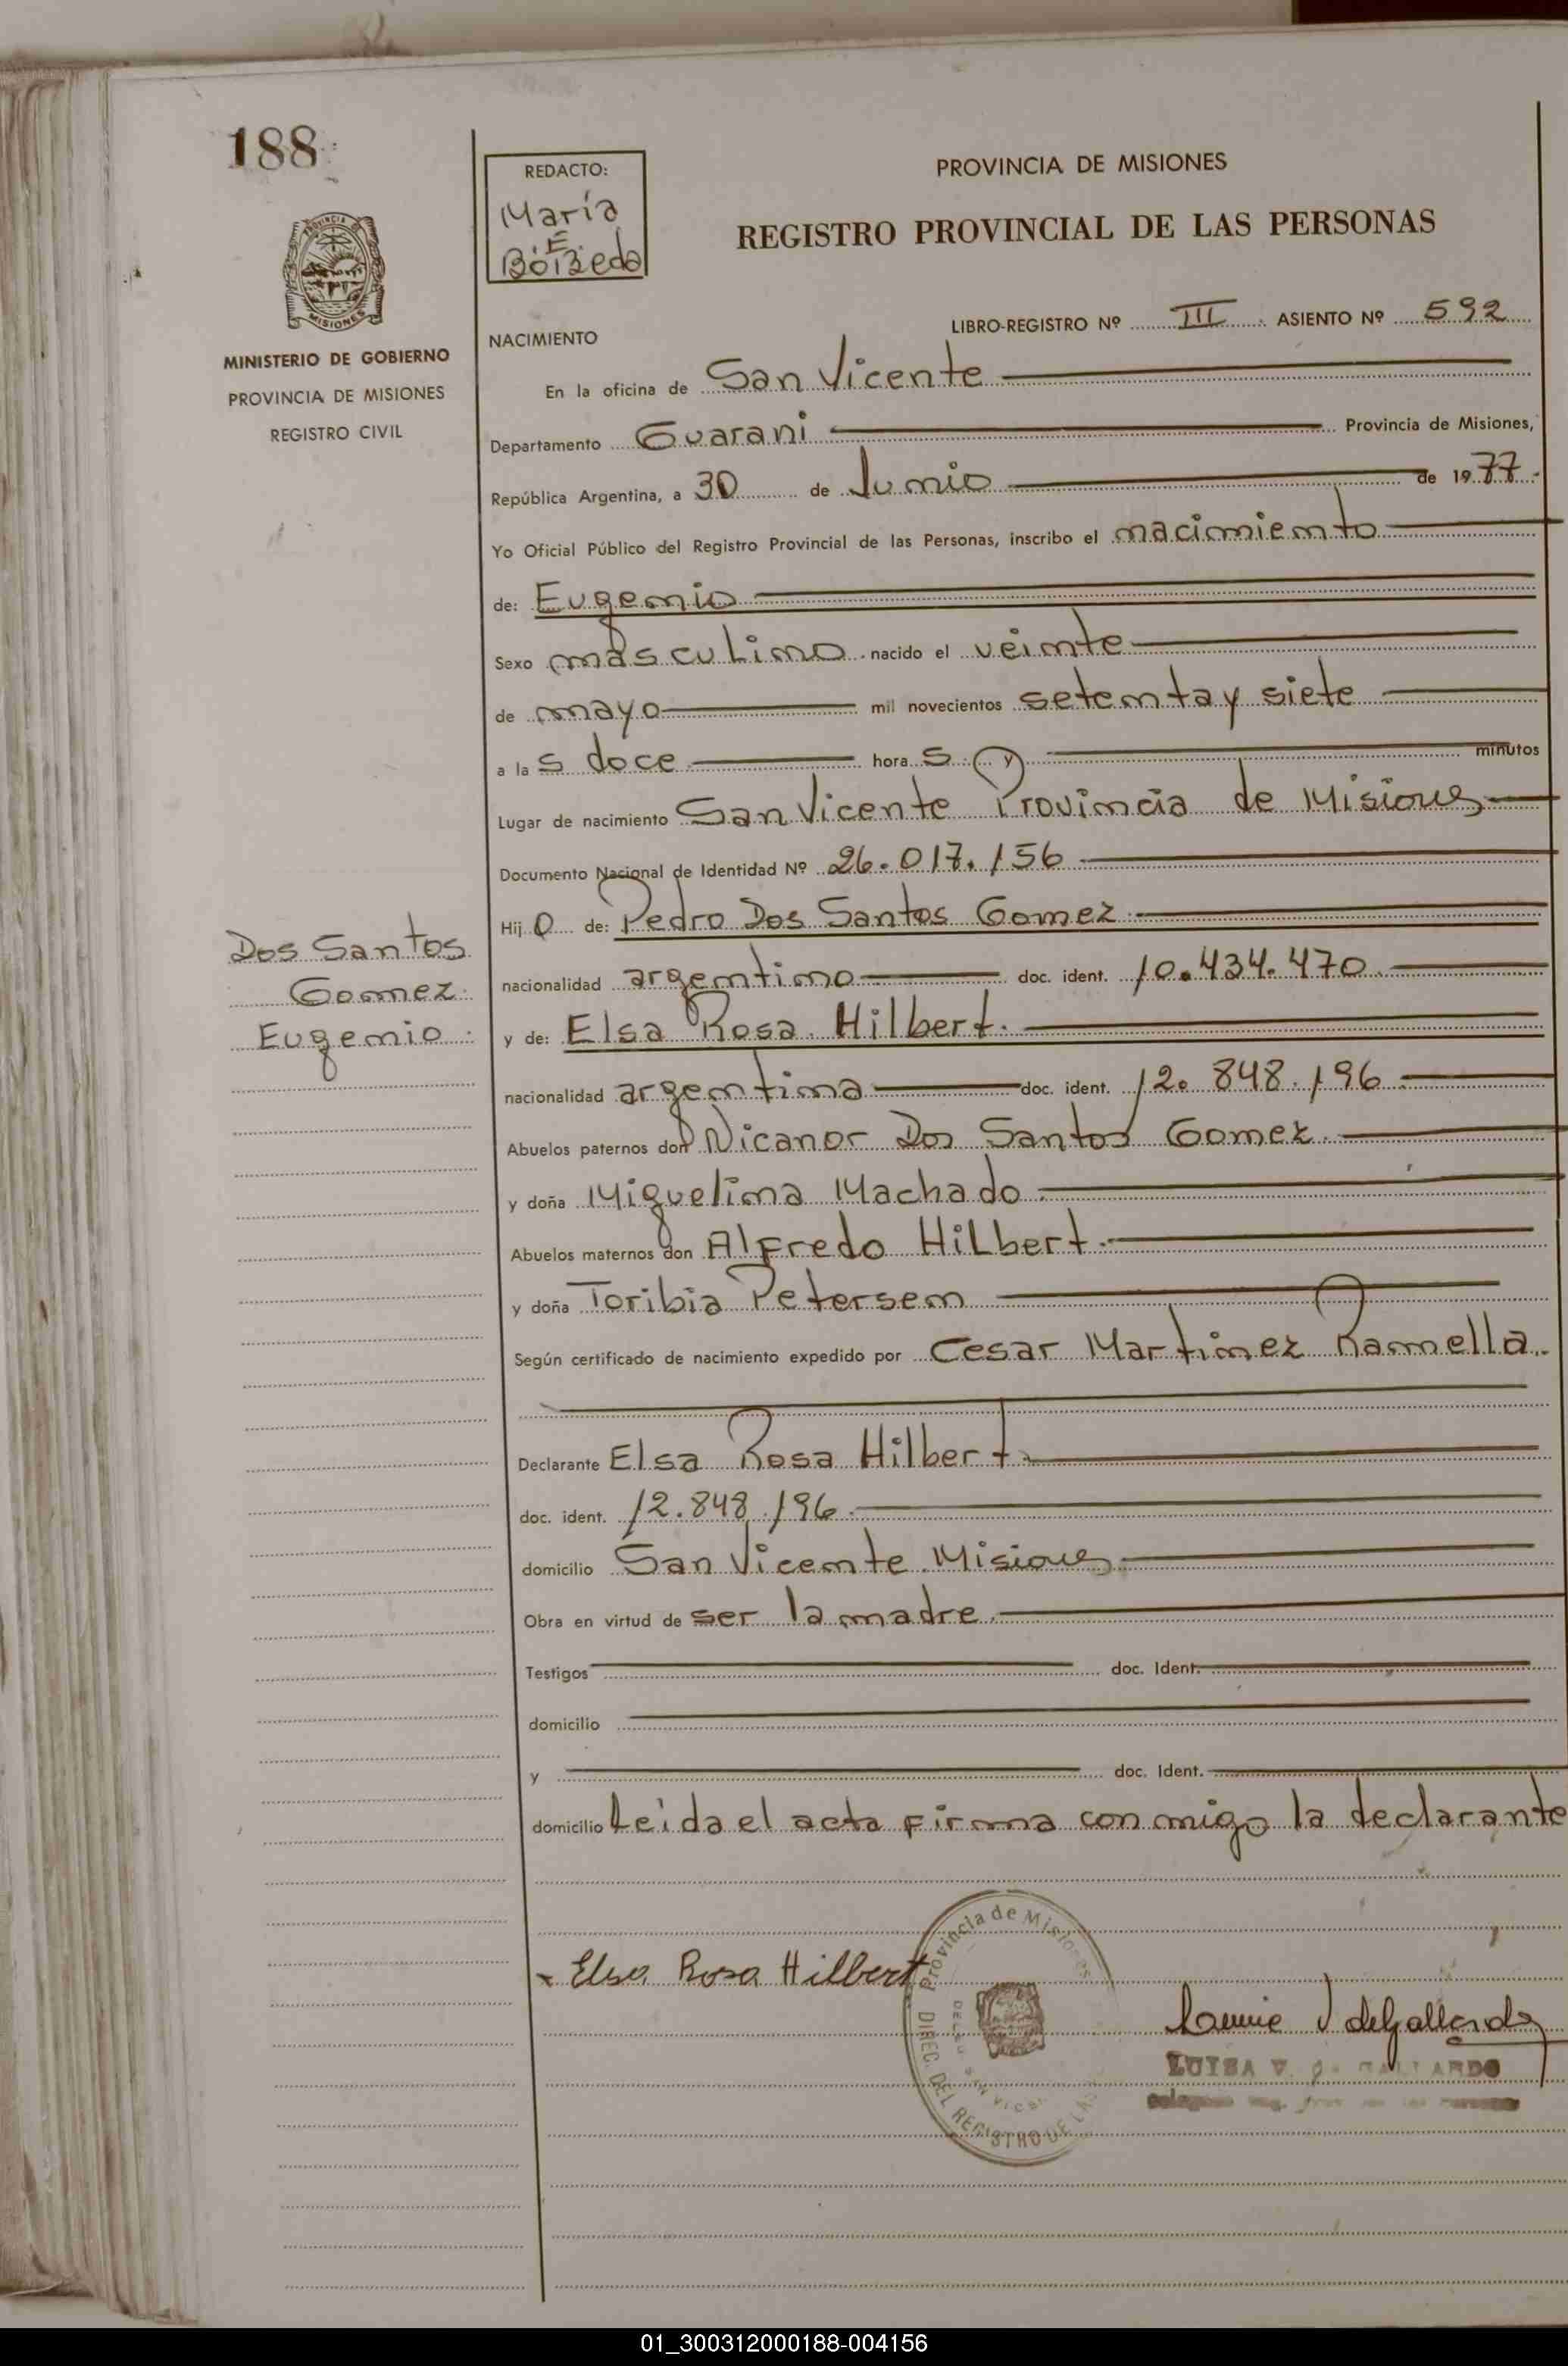 188
REDACTO:
María
E.
Boizeda
PROVINCIA DE MISIONES
REGISTRO PROVINCIAL DE LAS PERSONAS
MINISTERIO DE GOBIERNO
PROVINCIA DE MISIONES
REGISTRO CIVIL
LIBRO-REGISTRO Nº III ASIENTO Nº 592
NACIMIENTO
En la oficina de San Vicente
Departamento Guarani Provincia de Misiones,
República Argentina, a 30 de Junio de 1977.
Yo Oficial Público del Registro Provincial de las Personas, inscribo el nacimiento
de: Eugenio
Sexo masculino nacido el veinte
de mayo mil novecientos setenta y siete
a las doce horas y minutos
Lugar de nacimiento San Vicente Provincia de Misiones
Documento Nacional de Identidad Nº 26.017.156
Hijo de: Pedro Dos Santos Gomez
Dos Santos
Gomez
Eugenio
nacionalidad argentino doc. ident. 10.434.470
y de: Elsa Rosa Hilbert.
nacionalidad argentina doc. ident. 12.848.196
Abuelos paternos don Nicanor Dos Santos Gomez.
y doña Miguelina Machado
Abuelos maternos don Alfredo Hilbert.
y doña Toribia Petersen
Según certificado de nacimiento expedido por Cesar Martinez Ramella.
Declarante Elsa Rosa Hilbert
doc. ident. 12.848.196
domicilio San Vicente Misiones
Obra en virtud de ser la madre
Testigos doc. Ident.
domicilio
y doc. Ident.
domicilio Leida el acta firma conmigo la declarante
Elsa Rosa Hilbert
Provincia de Misiones
DIREC. DEL REGISTRO DE LAS
de Gallardo
LUISA V. GALLARDO
01_300312000188-004156